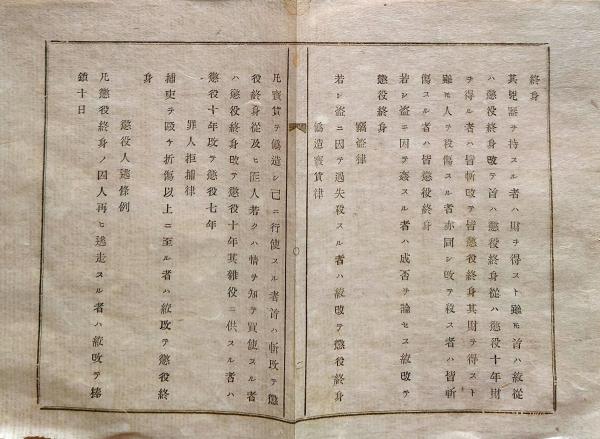 終身
其兇器ヲ持スル者ハ財ヲ得スト雖モ首ハ絞從
ハ懲役終身改テ首ハ懲役終身從ハ懲役十年財
ヲ得ル者ハ皆斬改テ皆懲役終身其財ヲ得スト
雖モ人ヲ殺傷スル者亦同シ改テ殺ス者ハ皆斬
傷スル者ハ皆懲役終身
若シ盜ニ因テ姦スル者ハ成否ヲ論セス絞改テ
懲役終身
竊盜律
若シ盜ニ因テ過失殺スル者ハ絞改テ懲役終身
僞造寳貨律
凡寳貨ヲ僞造シ已ニ行使スル者首ハ斬改テ懲
役終身從及ヒ匠人若クハ情ヲ知テ買使スル者
ハ懲役終身改テ懲役十年其雜役ニ供スル者ハ
懲役十年改テ懲役七年
罪人拒捕律
捕吏ヲ毆ケ折傷以上ニ至ル者ハ絞改テ懲役終
身
懲役人逃條例
凡懲役終身ノ囚人再ヒ逃走スル者ハ絞改テ棒
鎖十日